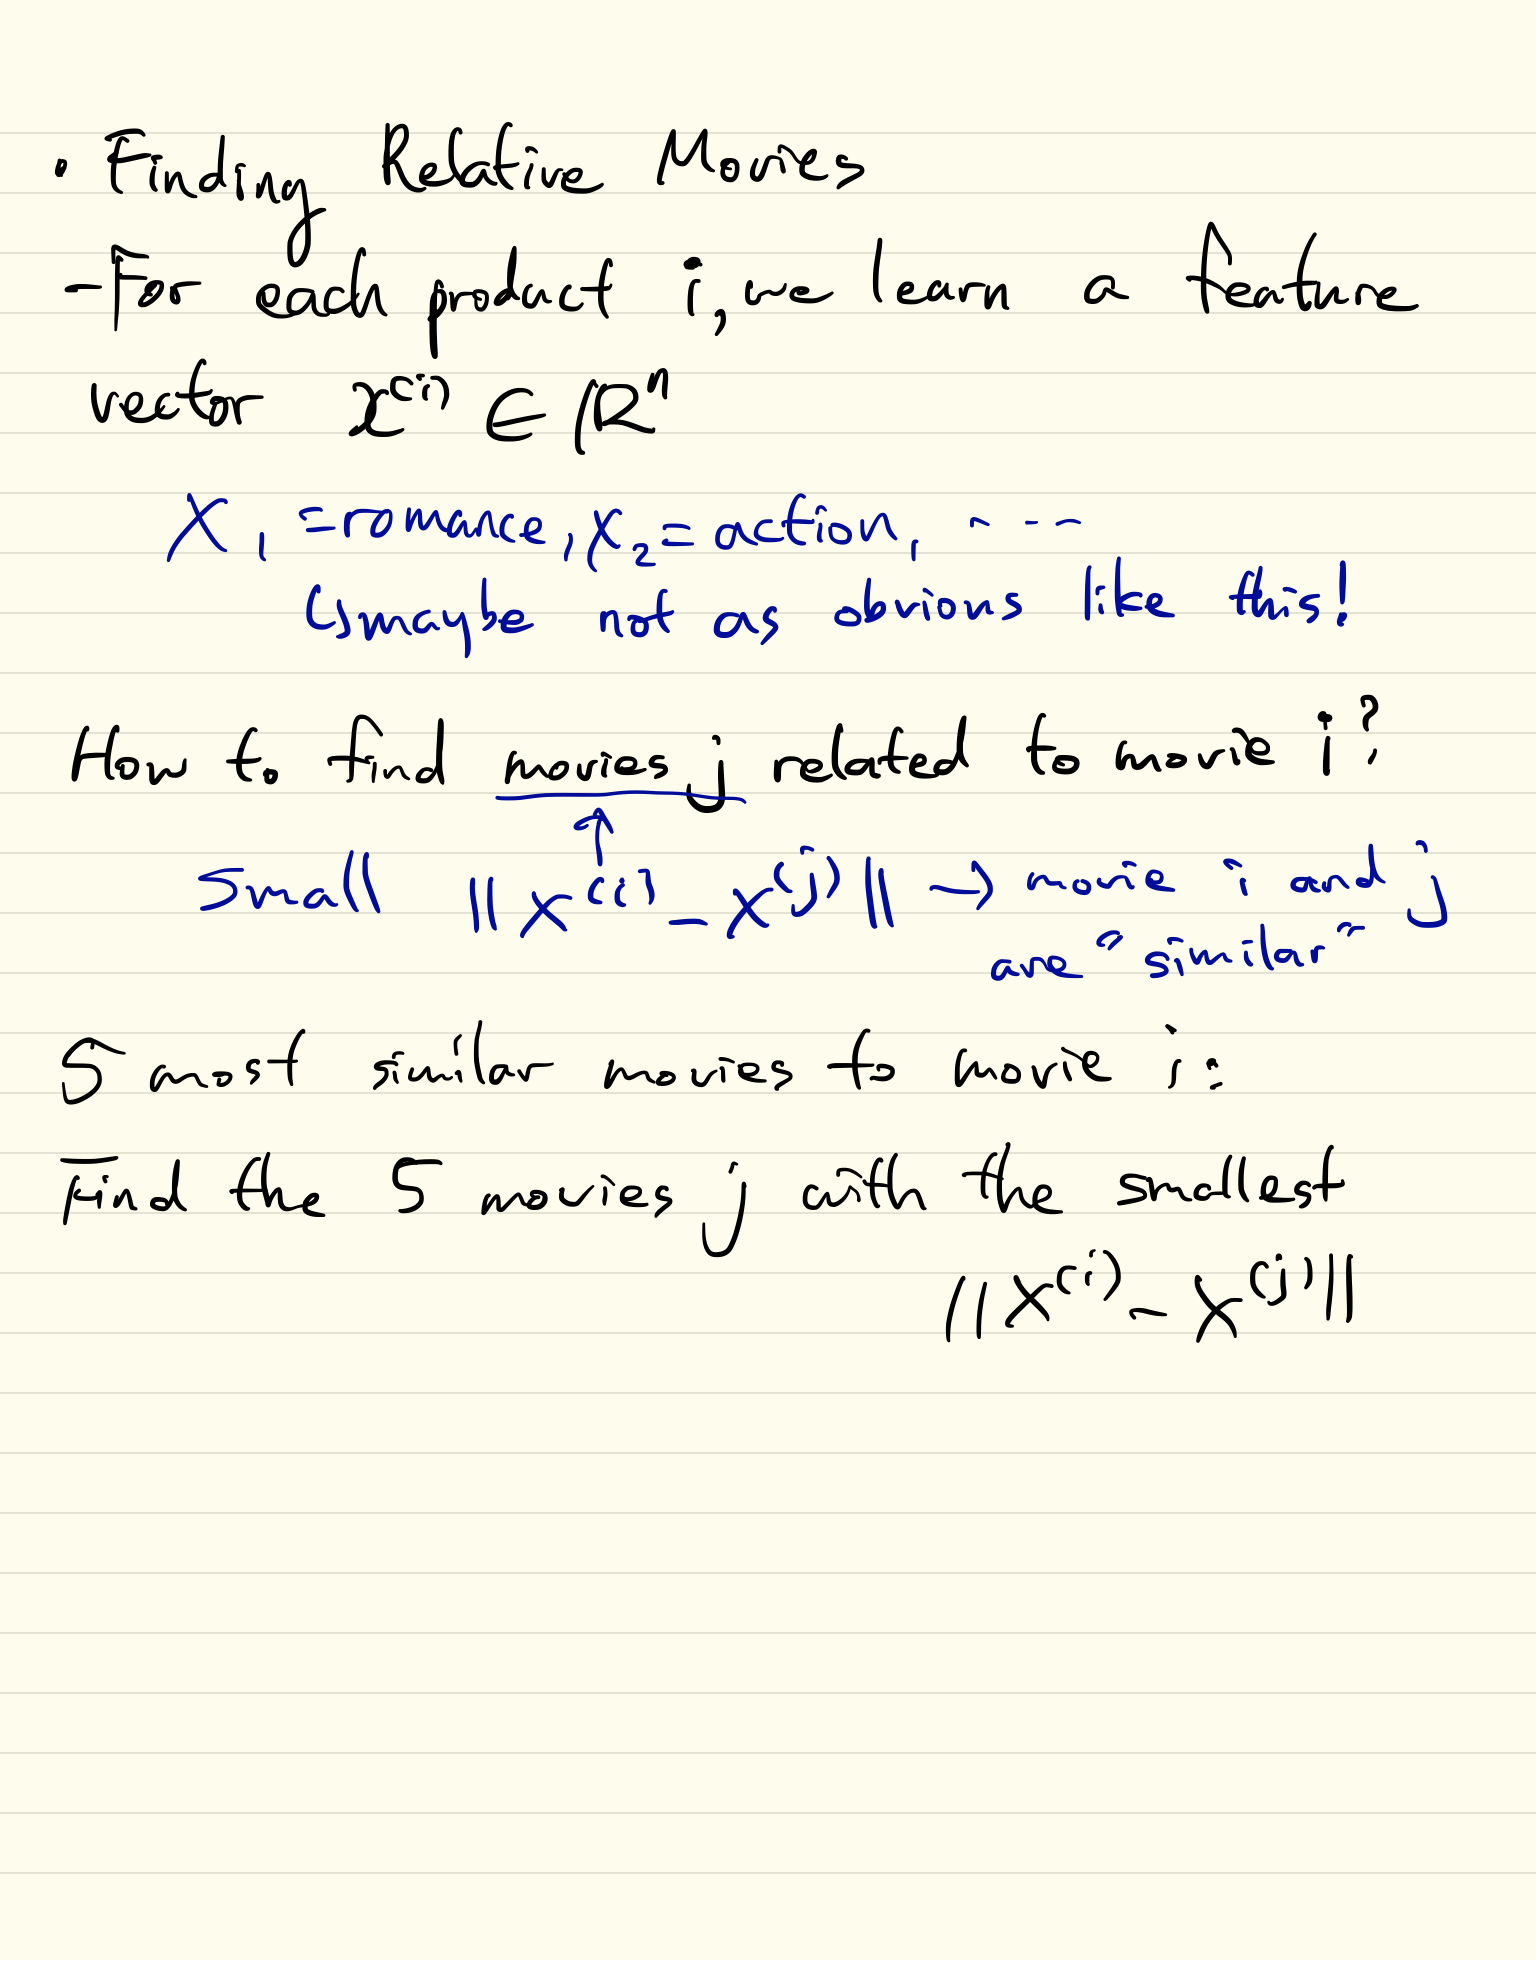 • Finding Relative Movies
- For each product i, we learn a feature
vector x⁽ⁱ⁾ ∈ ℝⁿ
X₁ = romance, X₂ = action, ----
↳ maybe not as obvious like this!
How to find movies j related to movie i?
↑
Small ||x⁽ⁱ⁾ - x⁽ʲ⁾|| → movie i and j
are "similar"
5 most similar movies to movie i:
Find the 5 movies j with the smallest
||x⁽ⁱ⁾ - x⁽ʲ⁾||